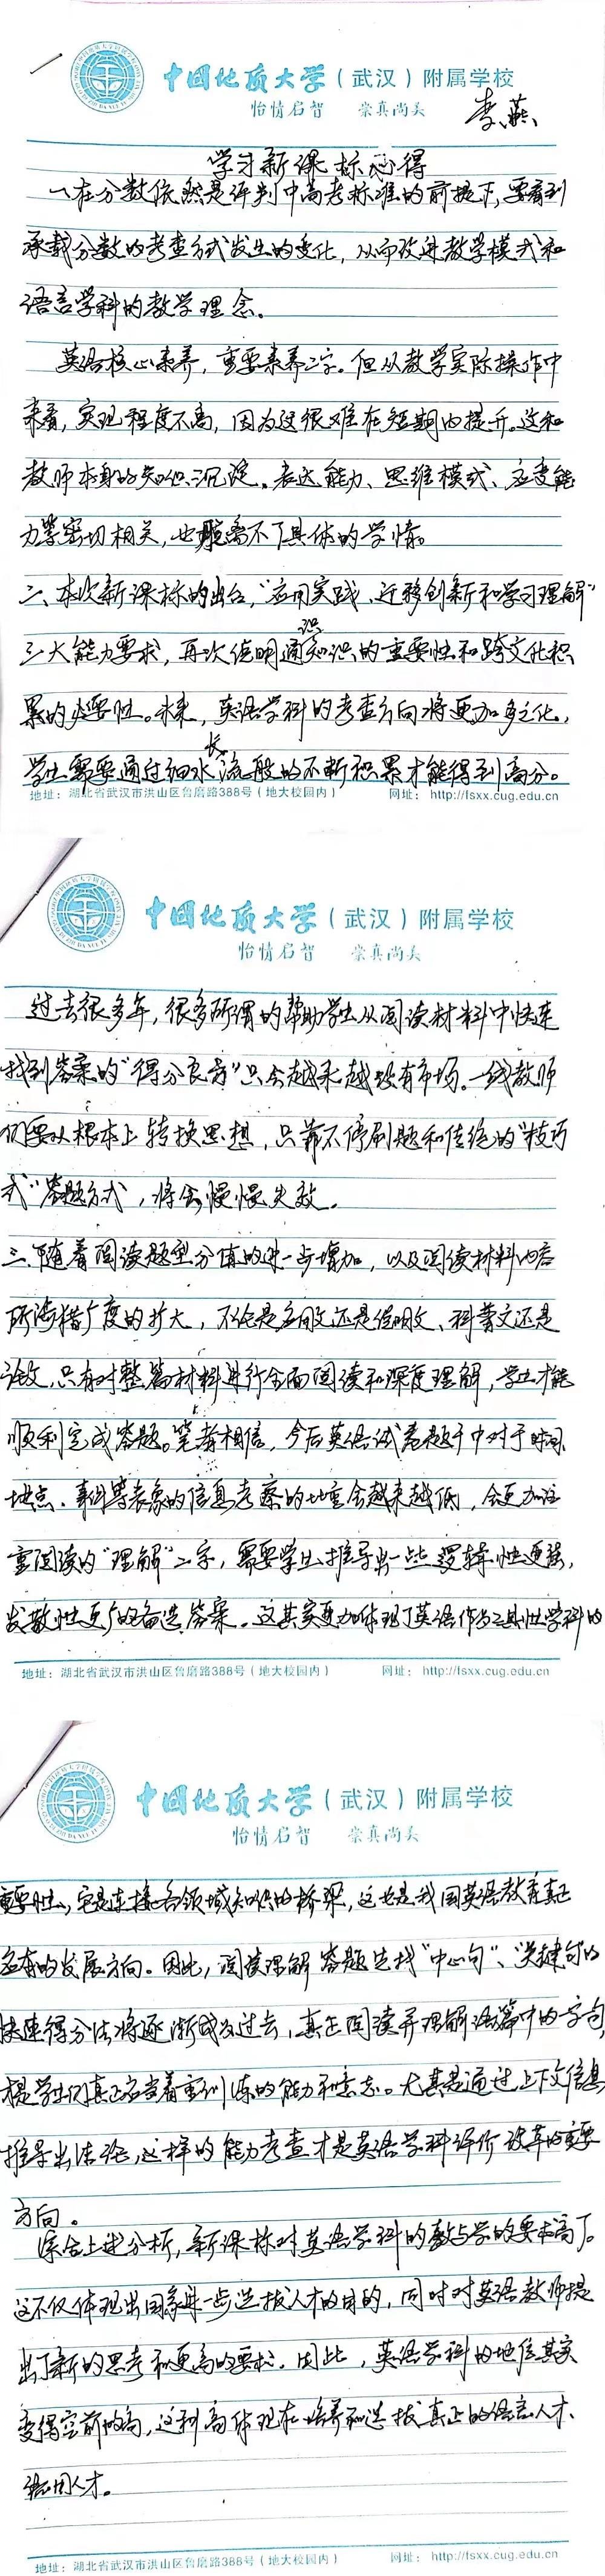 中国地质大学（武汉）附属学校
怡情启智 崇真尚美
李燕
学习新课标心得
一、在分数依然是评判中高考标准的前提下，要看到
承载分数的考查方式发生的变化，从而改进教学模式和
语言学科的教学理念。
英语核心素养，重要素养二字。但从教学实际操作中
来看，实现程度不高，因为这很难在短期内提升。这和
教师本身的知识沉淀、表达能力、思维模式、应变能
力等密切相关，也脱离不了具体的学情。
二、本次新课标的出台，“应用实践、迁移创新和学习理解”
三大能力要求，再次证明通识知识的重要性和跨文化积
累的必要性。未来，英语学科的考查方向将更加多元化，
学生需要通过细水长流般的不断积累才能得到高分。
地址：湖北省武汉市洪山区鲁磨路388号（地大校园内） 网址：http://fsxx.cug.edu.cn
中国地质大学（武汉）附属学校
怡情启智 崇真尚美
过去很多年，很多所谓的帮助学生从阅读材料中快速
找到答案的“得分良方”只会越来越没有市场。一线教师
们要从根本上转换思想，只靠不停刷题和传统的“技巧
式”答题方式，将会慢慢失效。
三、随着阅读题型分值的进一步增加，以及阅读材料内容
所涉猎广度的扩大，不论是应用文还是说明文、科普文还是
论文，只有对整篇材料进行全面阅读和深度理解，学生才能
顺利完成答题。笔者相信，今后英语试卷题干中对于时间、
地点、事件等表象的信息考察的比重会越来越低，会更加注
重阅读的“理解”二字，需要学生推导出一些逻辑性更强，
发散性更广的备选答案。这其实更加体现了英语作为工具性学科的
地址：湖北省武汉市洪山区鲁磨路388号（地大校园内） 网址：http://fsxx.cug.edu.cn
中国地质大学（武汉）附属学校
怡情启智 崇真尚美
重要性，它是连接各领域知识的桥梁，这也是我国英语教育真正
应有的发展方向。因此，阅读理解答题先找“中心句”、“关键句”的
快速得分法将逐渐成为过去，真正阅读并理解语篇中的字句，
才是学生们真正应当着重训练的能力和意志。尤其是通过上下文信息
推导出结论，这样的能力考查才是英语学科评价改革的重要
方向。
综合上述分析，新课标对英语学科的教与学的要求高了。
这不仅体现出国家进一步选拔人才的目的，同时对英语教师提
出了新的思考和更高的要求。因此，英语学科的地位其实
变得空前的高，这种高体现在培养和选拔真正的语言人才、
人才。
地址：湖北省武汉市洪山区鲁磨路388号（地大校园内） 网址：http://fsxx.cug.edu.cn